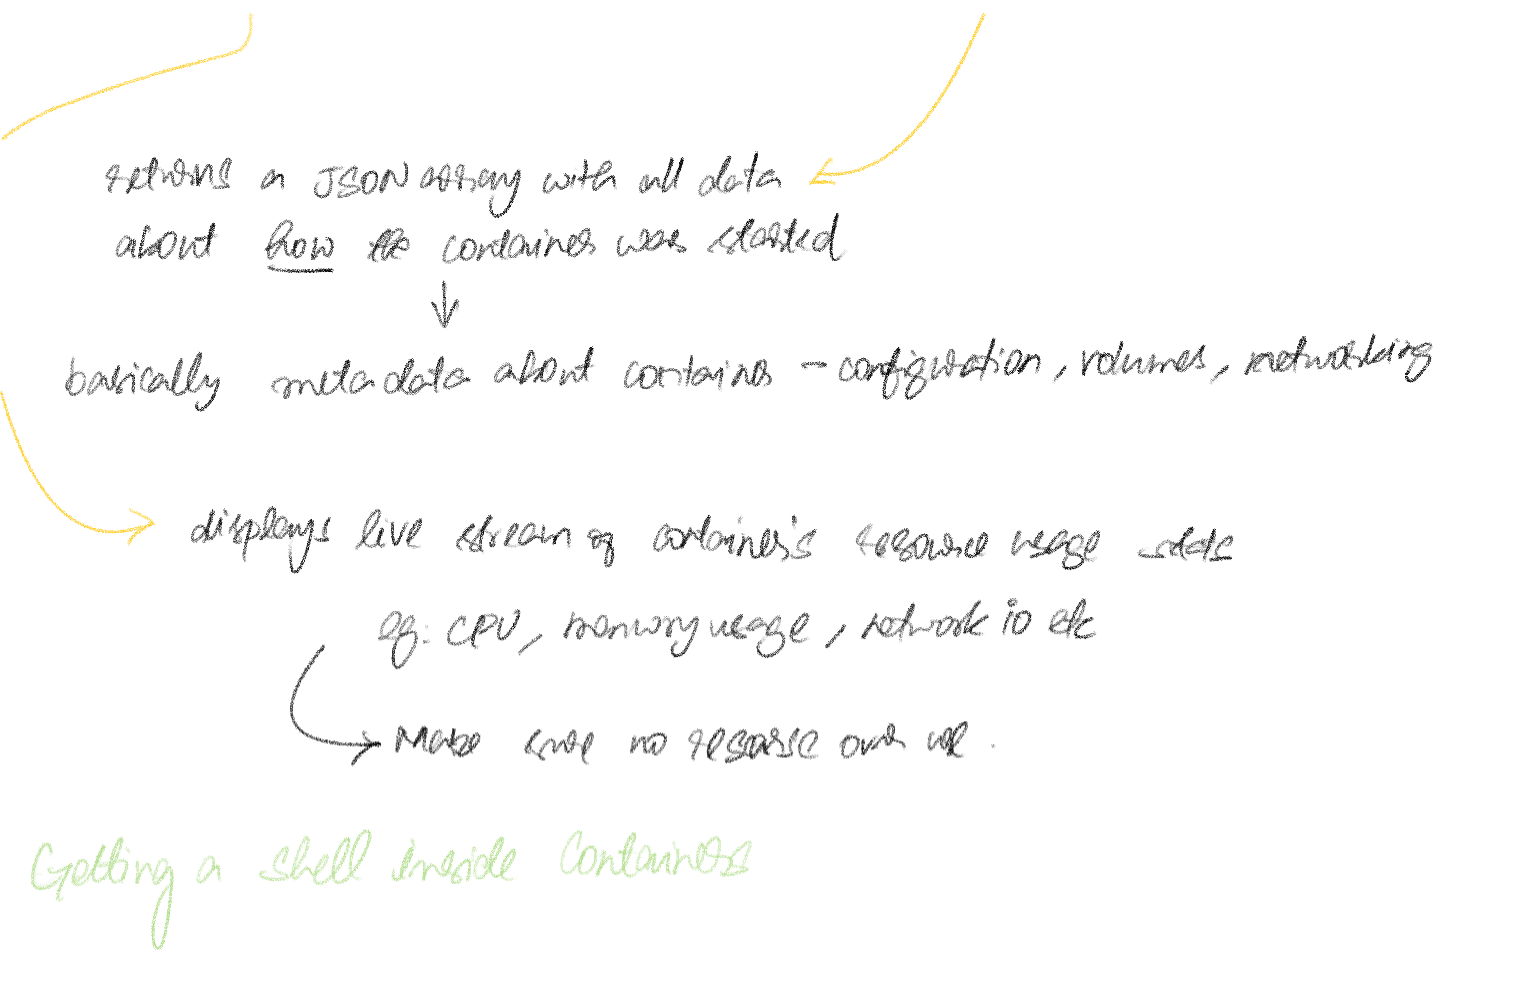 returns a JSON array with all data
about how the container was started
basically metadata about container - configuration, volumes, networking
displays live stream of container's resource usage stats
eg: CPU, memory usage, network io etc
Make sure no resource over use.
Getting a shell inside containers